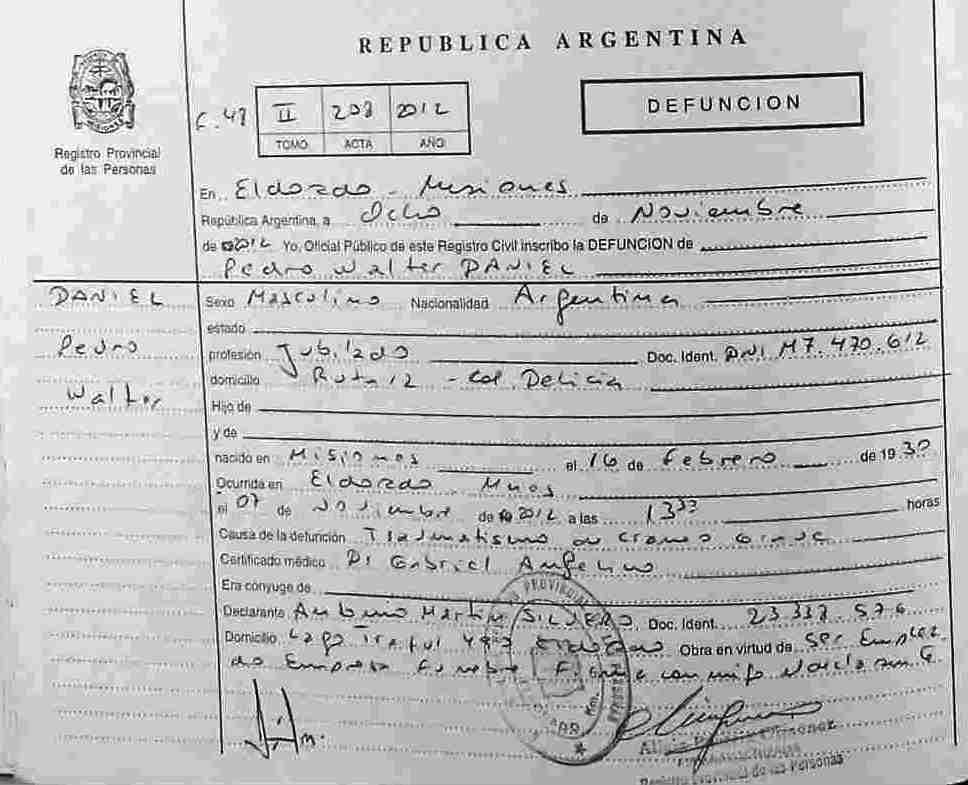 REPUBLICA ARGENTINA
Registro Provincial
de las Personas
II 208 2012
TOMO ACTA AÑO
DEFUNCION
En Eldorado - Misiones
República Argentina, a Ocho de Noviembre
de 2012 Yo, Oficial Público de este Registro Civil inscribo la DEFUNCION de
Pedro Walter DANIEL
DANIEL
Pedro
Walter
Sexo Masculino Nacionalidad Argentina
estado
profesión Jubilado Doc. Ident. DNI M7.470.612
domicilio Ruta 12 - Col. Delicia
Hijo de
y de
nacido en Misiones el 16 de Febrero de 19
Ocurrida en Eldorado Mnes
el 07 de Noviembre de 2012 a las horas
Causa de la defunción Traumatismo de craneo grave
Certificado médico Dr Gabriel
Era cónyuge de
Declarante Martin SILVERO Doc. Ident. 23.337.576
Domicilio Lago Obra en virtud de ser Emplea
do Empresa Funebre
Registro Provincial de las Personas